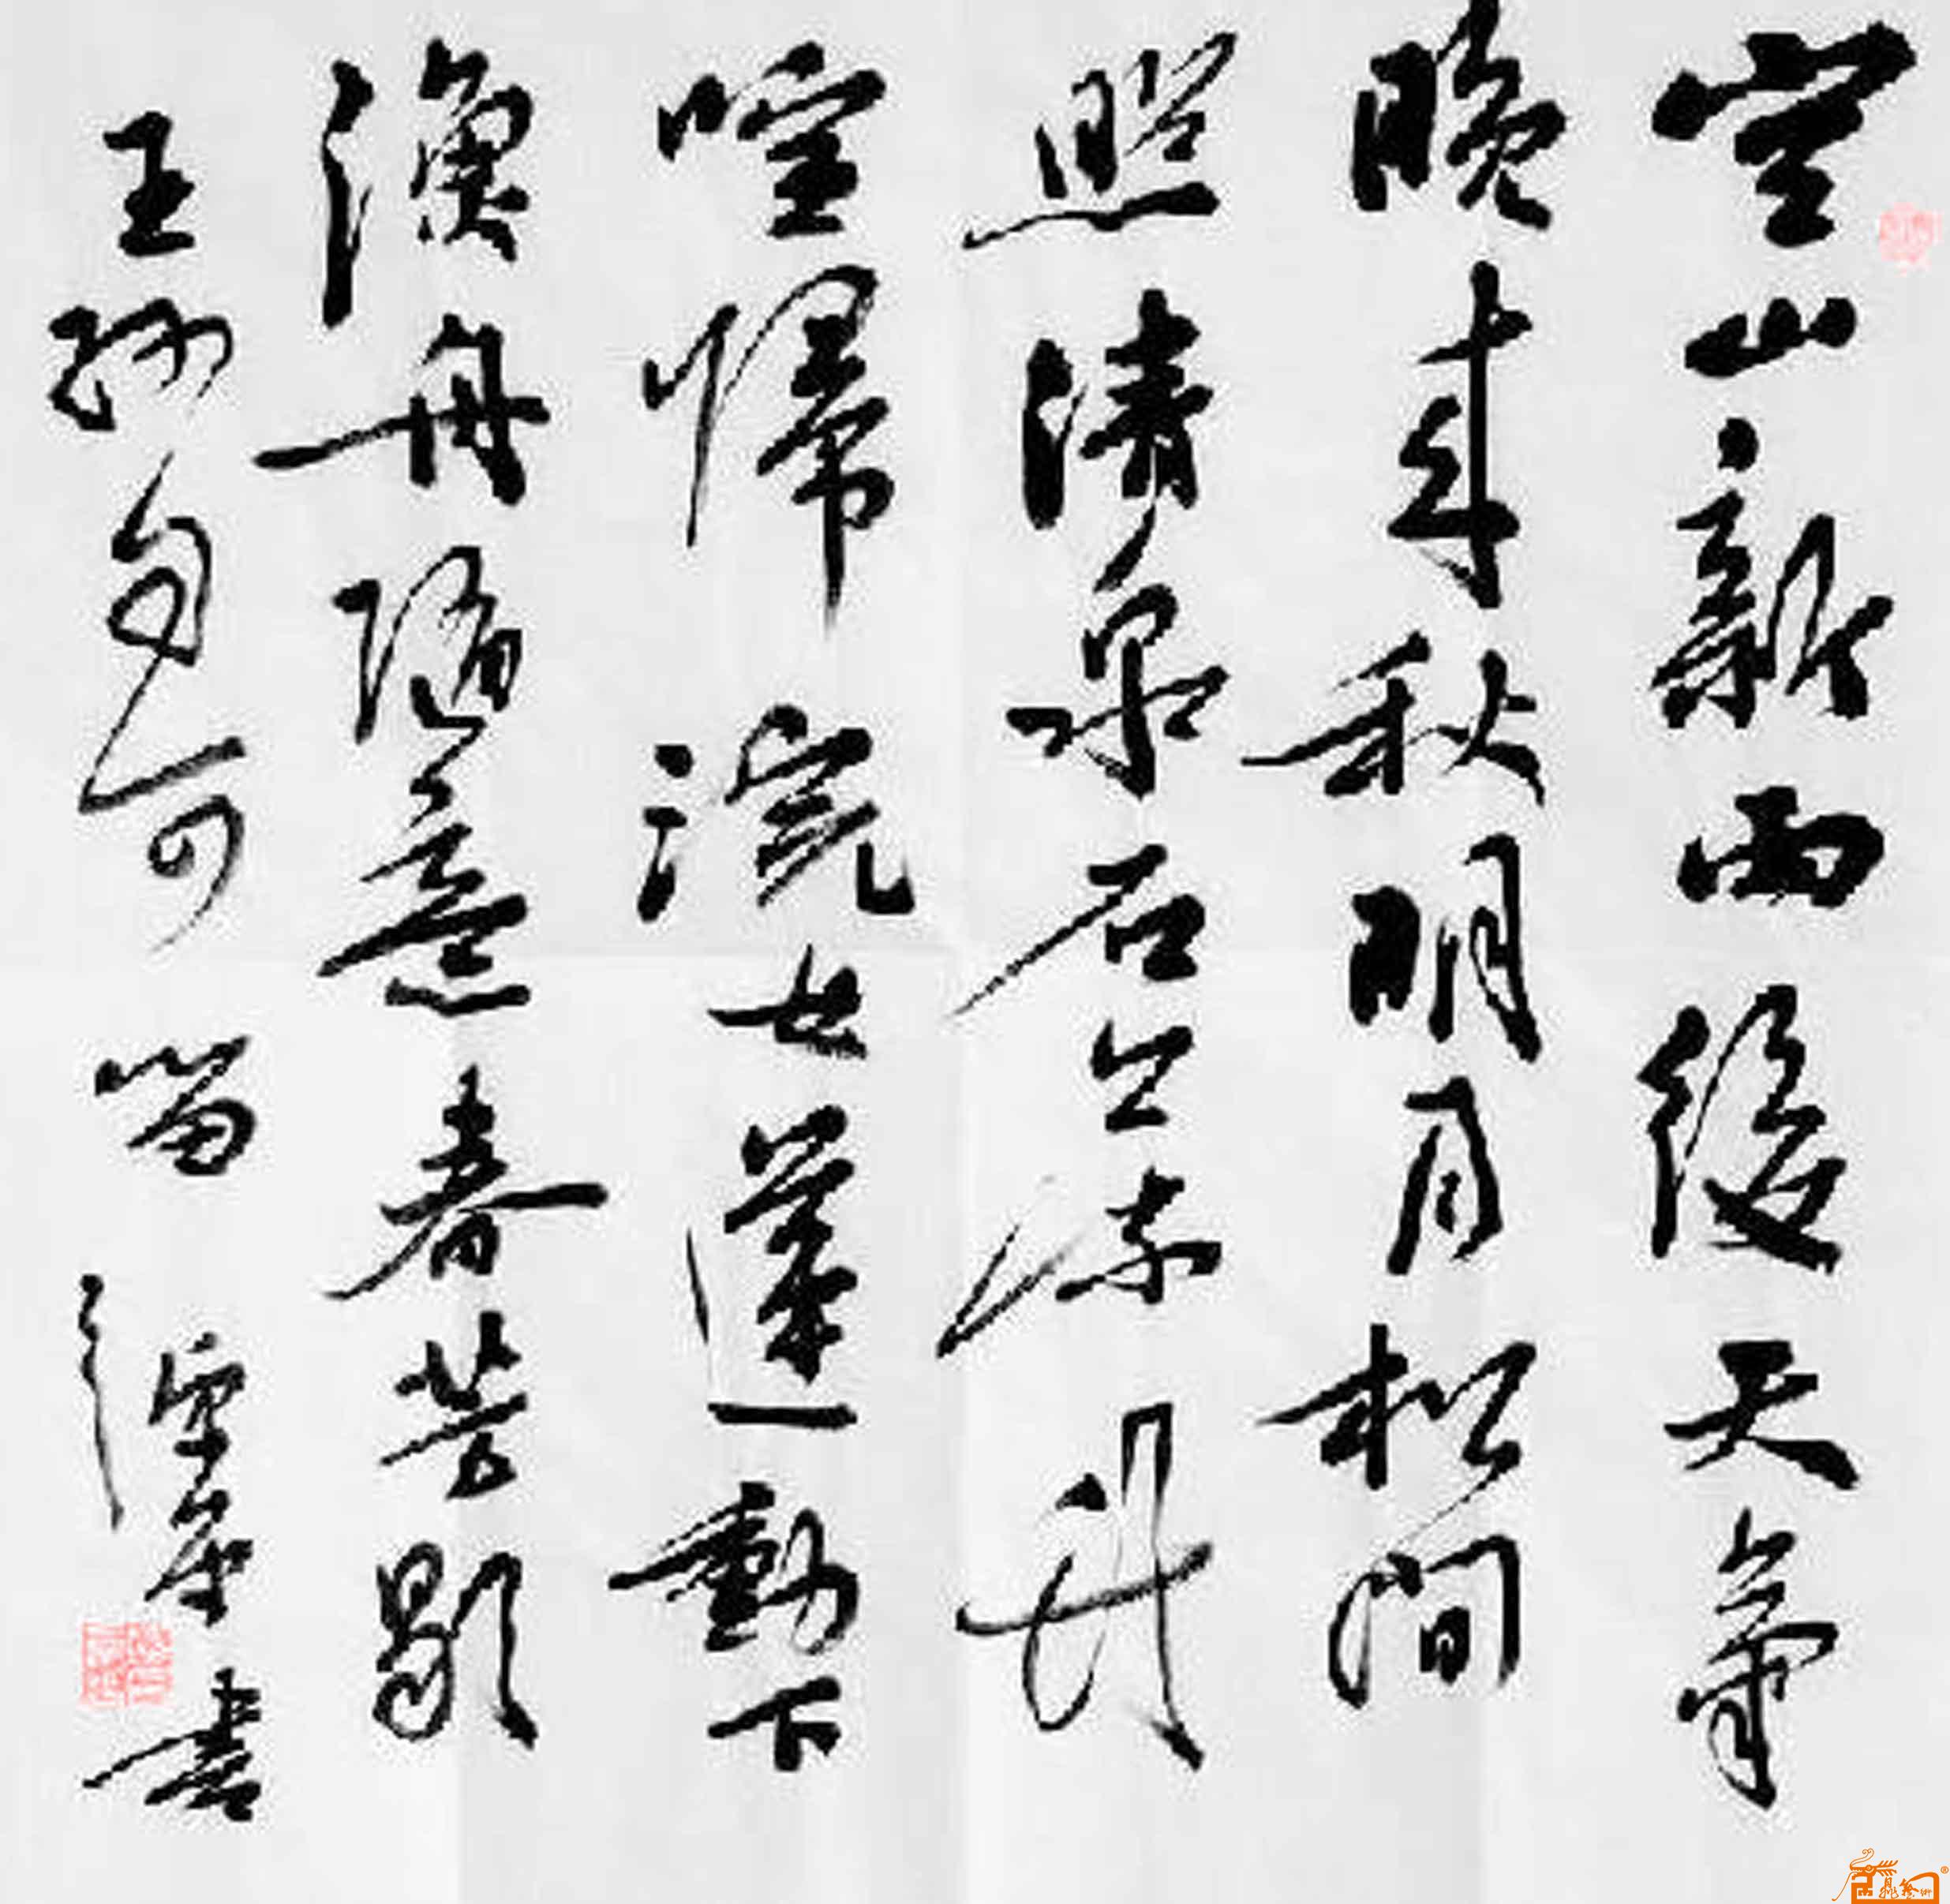 空山新雨後天氣
晚來秋明月松間
照清泉石上流竹
喧歸浣女蓮動下
漁舟隨意春芳歇
王孫自可留 書